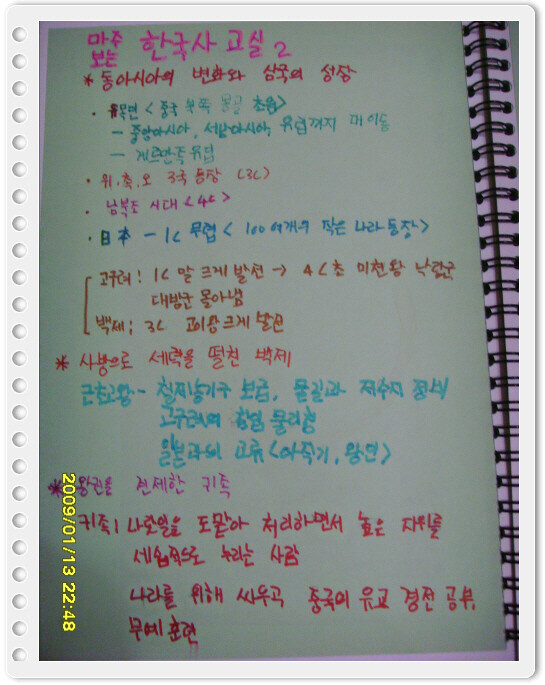 마주
보는 한국사 교실 2
* 동아시아의 변화와 삼국의 성장
· 유목민 <중국 북쪽 몽골 초원>
- 중앙아시아, 서남아시아, 유럽까지 대이동
- 게르만족 유럽
· 위·촉·오 3국 등장 <3C>
· 남북조 시대 <4C>
· 日本 - 1C 무렵 < 100여개의 작은 나라 등장>
고구려 : 1C 말 크게 발전 → 4C초 미천왕 낙랑군
대방군 몰아냄
백제 ; 3C 고이왕 크게 발전
* 사방으로 세력을 떨친 백제
근초고왕 - 철제농기구 보급, 물길과 저수지 정비
고구려의 침입 물리침
일본과의 교류 <아직기, 왕인>
* 왕권을 견제한 귀족
귀족 ; 나랏일을 도맡아 처리하면서 높은 지위를
세습적으로 누리는 사람
나라를 위해 싸우곤 중국의 유교 경전 공부,
무예 훈련
2009/01/13 22:48